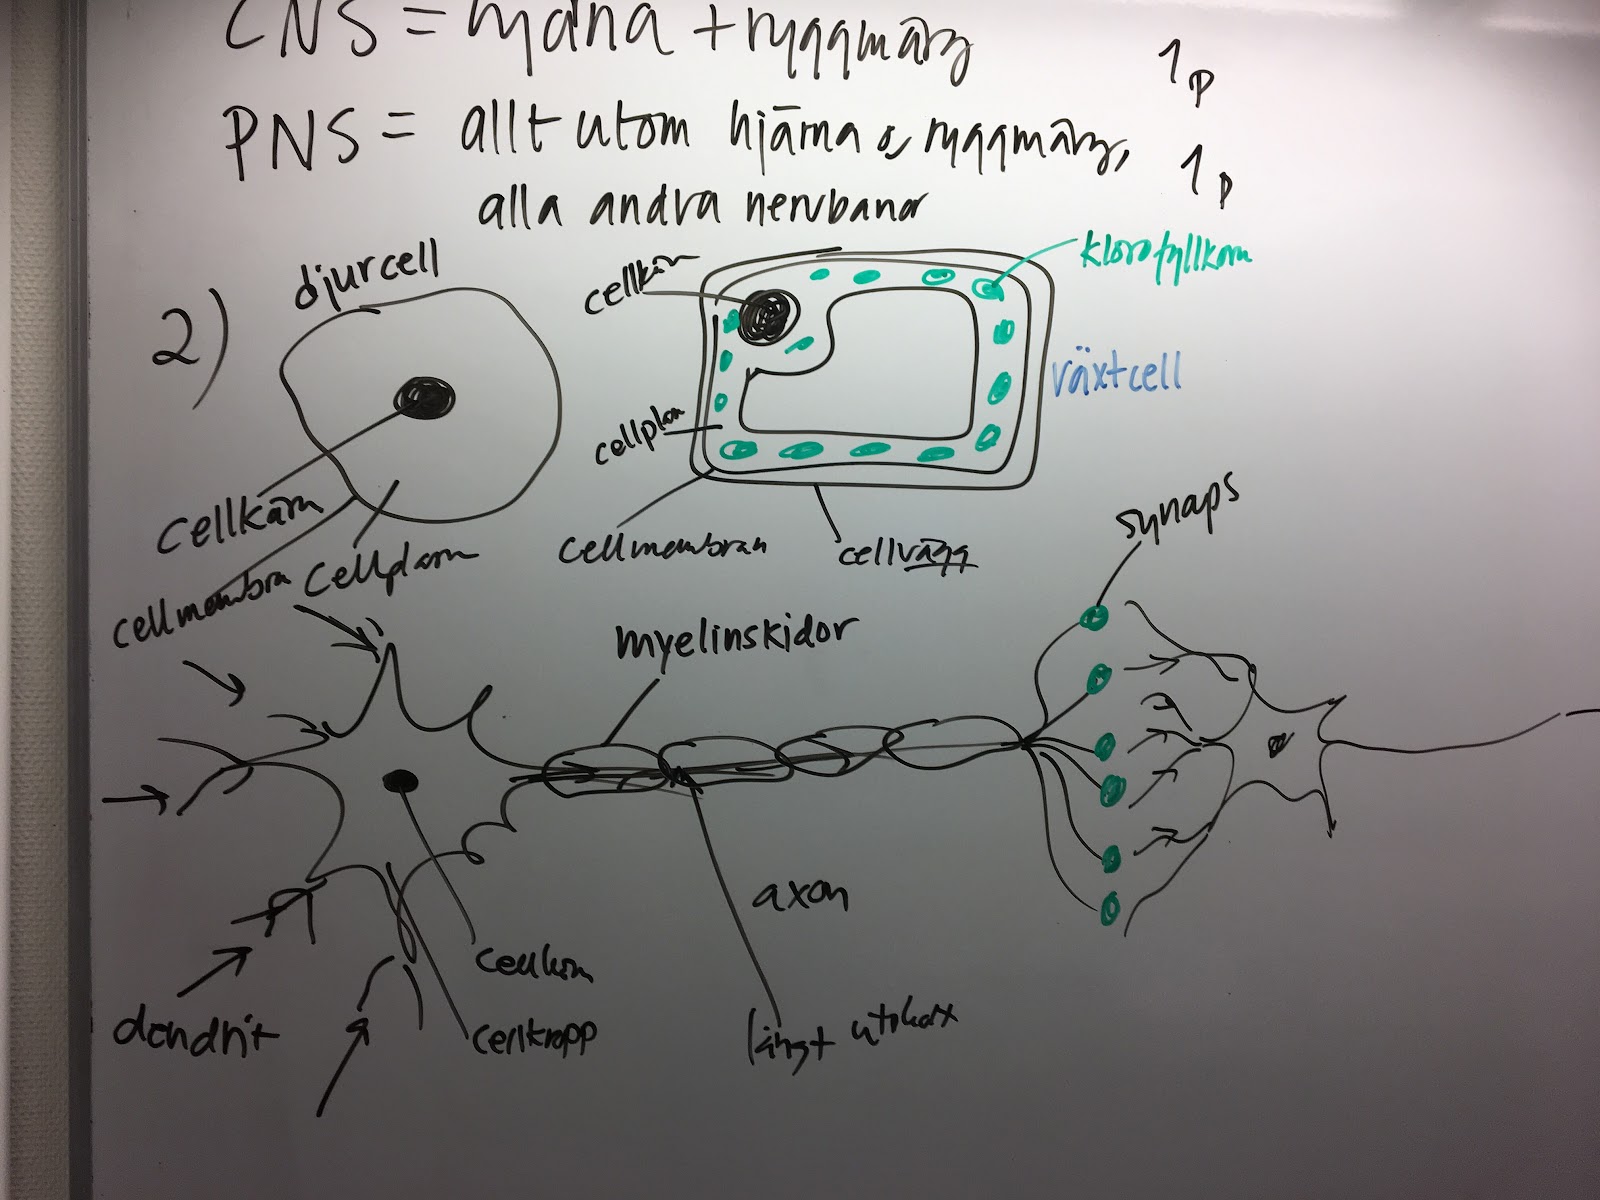 CNS = hjärna + ryggmärg 1p
PNS = allt utom hjärna & ryggmärg, 1p
alla andra nervbanor
2) djurcell
cellkärn
klorofyllkorn
växtcell
cellplasm
cellkärn
cellplasm
cellmembran
cellmembran
cellvägg
synaps
myelinskidor
axon
cellkärn
dendrit
cellkropp
långt utskott